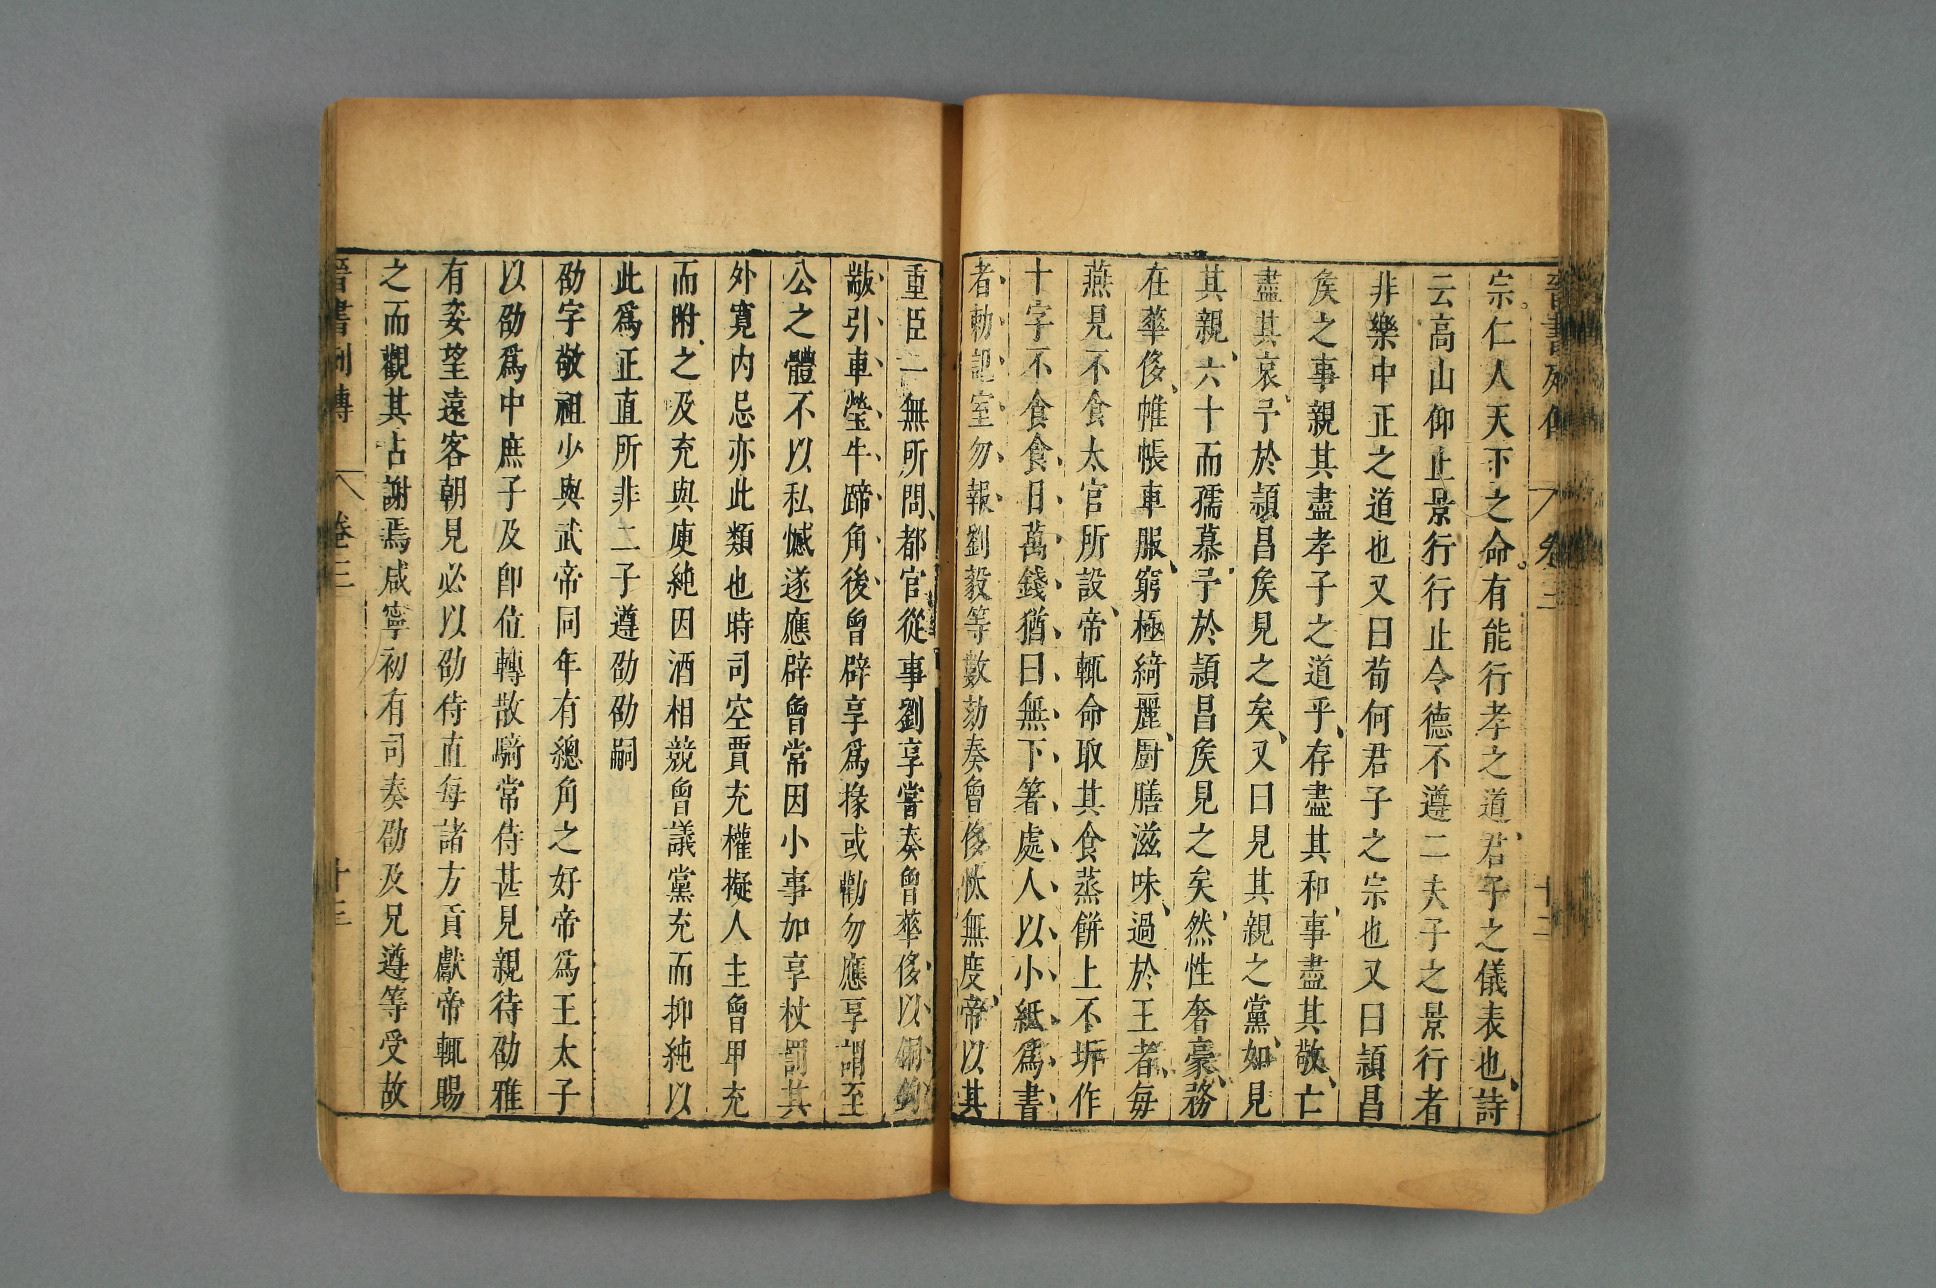 晉書列傳 卷三 十二
宗仁人天下之命有能行孝之道君子之儀表也詩
云高山仰止景行行止令德不遵二夫子之景行者
非樂中正之道也又曰荀何君子之宗也又曰頴昌
矦之事親其盡孝子之道乎存盡其和事盡其敬亡
盡其哀予於頴昌矦見之矣又曰見其親之黨如見
其親六十而孺慕予於頴昌矦見之矣然性奢豪務
在華侈帷帳車服窮極綺麗厨膳滋味過於王者每
燕見不食太官所設帝輒命取其食蒸餅上不坼作
十字不食食日萬錢猶曰無下箸處人以小紙爲書
者勅記室勿報劉毅等數劾奏曾侈忲無度帝以其
重臣一無所問都官從事劉享嘗奏曾華侈以銅鉤
紖引車瑩牛蹄角後曾辟享爲掾或勸勿應享謂至
公之體不以私憾遂應辟曾常因小事加享杖罰其
外寛内忌亦此類也時司空賈充權擬人主曾卑充
而附之及充與庾純因酒相競曾議黨充而抑純以
此爲正直所非二子遵劭劭嗣
劭字敬祖少與武帝同年有總角之好帝爲王太子
以劭爲中庶子及卽位轉散騎常侍甚見親待劭雅
有姿望遠客朝見必以劭侍直每諸方貢獻帝輒賜
之而觀其占謝焉咸寧初有司奏劭及兄遵等受故
晉書列傳 卷三 十三